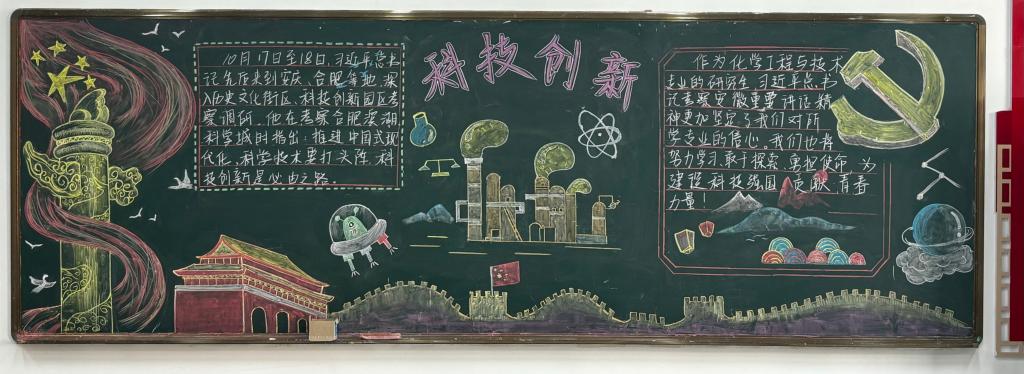 科技创新
10月17日至18日，习近平总书
记先后来到安庆、合肥等地，深
入历史文化街区、科技创新园区考
察调研。他在考察合肥滨湖
科学城时指出：推进中国式现
代化，科学技术要打头阵，科
技创新是必由之路。
作为化学工程与技术
专业的研究生，习近平总书
记考察安徽重要讲话精
神更加坚定了我们对所
学专业的信心。我们也将
努力学习，敢于探索，勇担使命，为
建设科技强国贡献青春
力量！